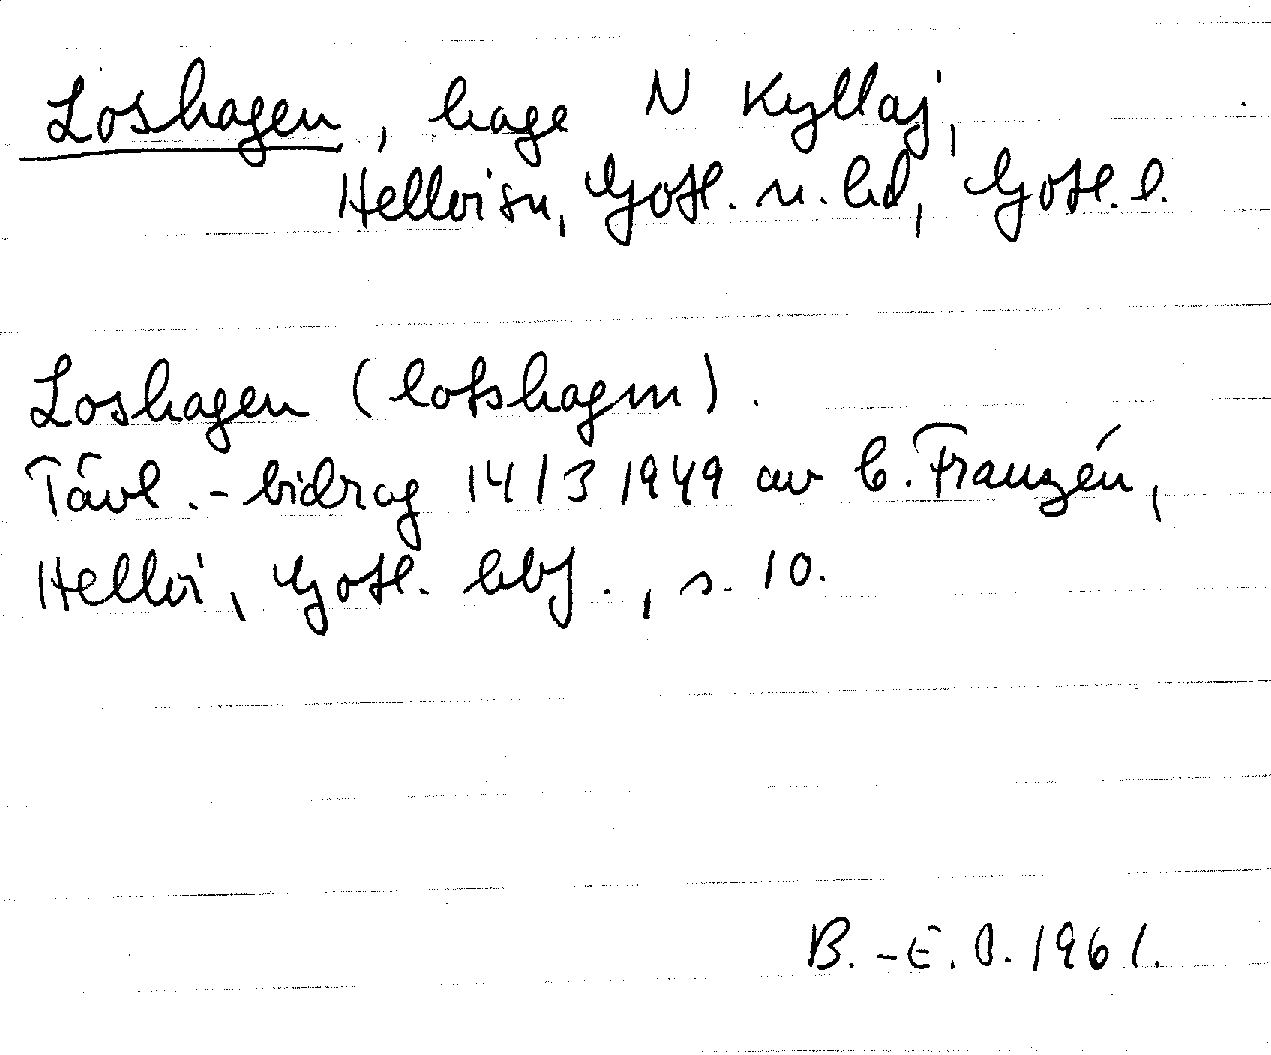 Loshagen, hage N Kyllaj,
Hellvi sn, Gotl. n. hd, Gotl. l.
Loshagen (lotshagen).
Tävl.-bidrag 14/3 1949 av C. Franzén,
Hellvi, Gotl. hbf., s. 10.
B.-E. O. 1961.